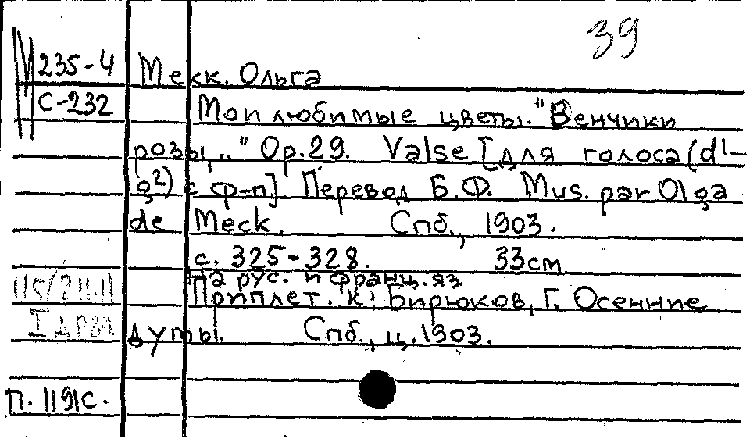 39
235-4 Мекк. Ольга
С-232 Мои любимые цветы. "Венчики
розы,.." Op.29. Valse [для голоса (d¹-
g²) с ф-п] Перевод Б.Ф. Mus. par Olga
de Meck. Спб., 1903.
с. 325-328. 33см
На рус. и франц. яз
Приплет. к: Бирюков, Г. Осенние
думы. Спб., ц. 1903.
П. 1191с.